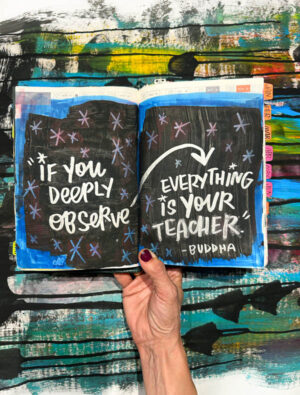 "IF YOU
DEEPLY
OBSERVE
EVERYTHING
IS YOUR
TEACHER."
-BUDDHA